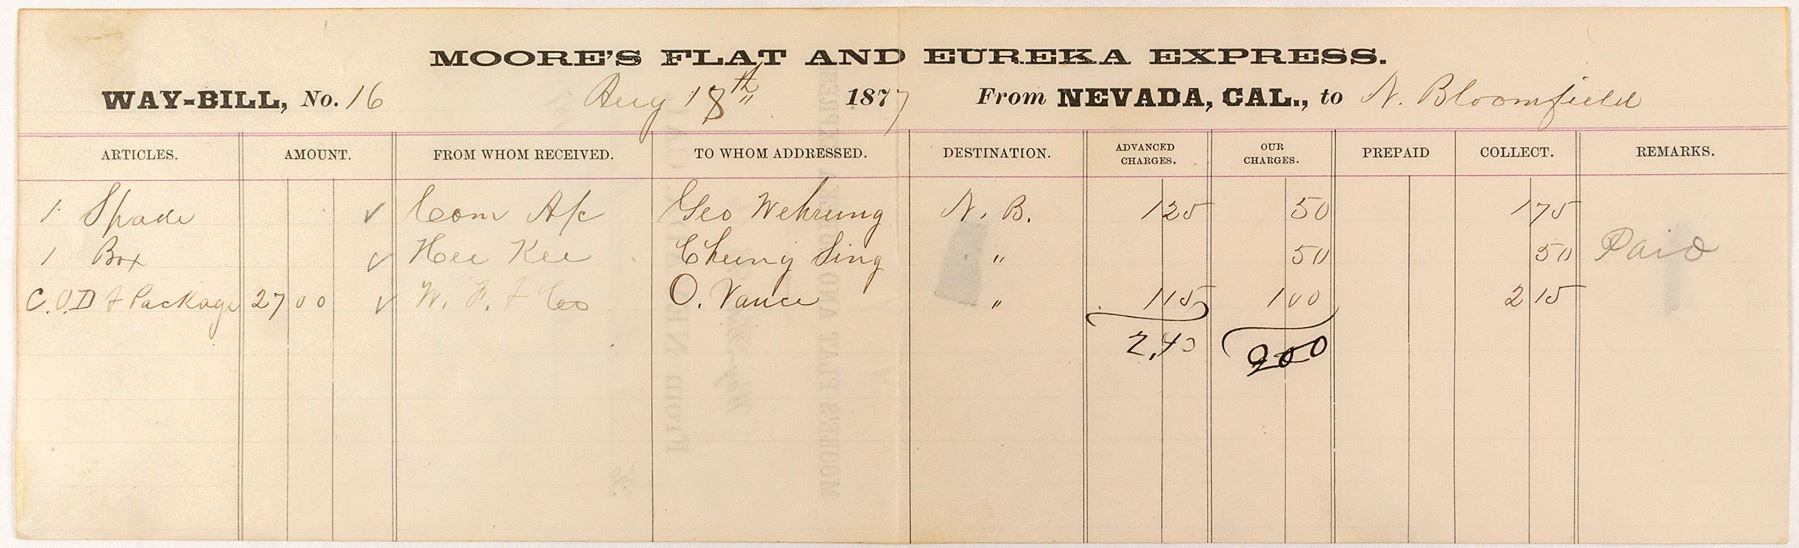 MOORE'S FLAT AND EUREKA EXPRESS.
WAY-BILL, No. 16 Aug 18th 1877 From NEVADA, CAL., to N. Bloomfield
ARTICLES. AMOUNT. FROM WHOM RECEIVED. TO WHOM ADDRESSED. DESTINATION. ADVANCED CHARGES. OUR CHARGES. PREPAID COLLECT. REMARKS.
1 Spade ✓ Com A/c Geo Wehrung N. B. 125 50 175
1 Box ✓ Hee Kee Cheung Sing " 50 50 Paid
C.O.D & Package 27 00 ✓ W. F. & Co O. Vance " 115 100 2 15
2,40 200